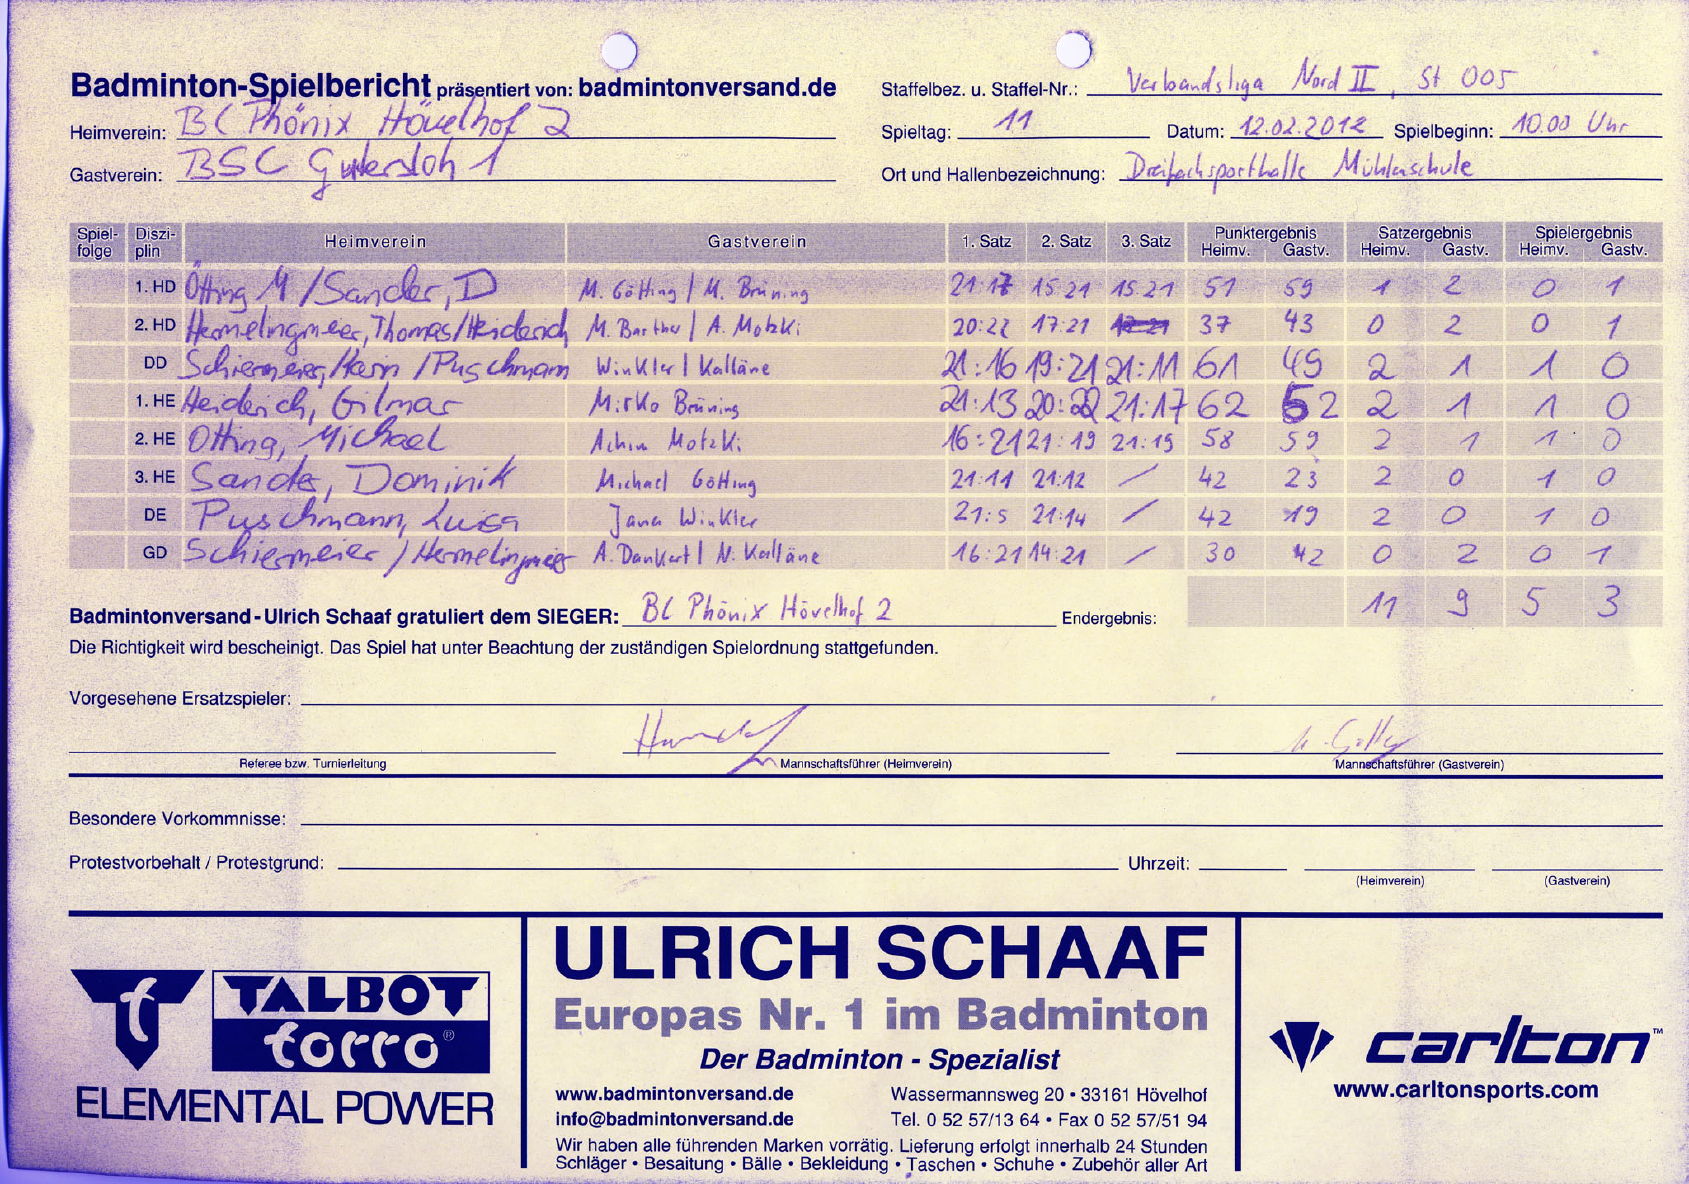 Badminton-Spielbericht präsentiert von: badmintonversand.de
Staffelbez. u. Staffel-Nr.: Verbandsliga Nord II, St 005
Heimverein: BC Phönix Hövelhof 2
Spieltag: 11 Datum: 12.02.2012 Spielbeginn: 10.00 Uhr
Gastverein: BSC Gütersloh 1
Ort und Hallenbezeichnung: Dreifachsporthalle Mühlenschule
Spiel-folge Diszi-plin Heimverein Gastverein 1. Satz 2. Satz 3. Satz Punktergebnis Heimv. Gastv. Satzergebnis Heimv. Gastv. Spielergebnis Heimv. Gastv.
1. HD Ötting M / Sander, D M. Götting / M. Brüning 21:17 15 21 15 21 51 59 1 2 0 1
2. HD Hermelingmeier, Thomas / Heiderich M. Barther / A. Motzki 20:22 17:21 37 43 0 2 0 1
DD Schiermeier, Kerin / Puschmann Winkler / Kalläne 21:16 19:21 21:11 61 49 2 1 1 0
1. HE Heiderich, Gilmar Mirko Brüning 21:13 20:22 21:17 62 52 2 1 1 0
2. HE Otting, Michael Achim Motzki 16:21 21:19 21:19 58 59 2 1 1 0
3. HE Sander, Dominik Michael Götting 21:11 21:12 / 42 23 2 0 1 0
DE Puschmann, Luisa Jana Winkler 21:5 21:14 / 42 19 2 0 1 0
GD Schiermeier / Hermelingmeier A. Dankert / N. Kalläne 16:21 14:21 / 30 42 0 2 0 1
Badmintonversand - Ulrich Schaaf gratuliert dem SIEGER: BC Phönix Hövelhof 2 Endergebnis: 11 9 5 3
Die Richtigkeit wird bescheinigt. Das Spiel hat unter Beachtung der zuständigen Spielordnung stattgefunden.
Vorgesehene Ersatzspieler:
Referee bzw. Turnierleitung Mannschaftsführer (Heimverein) Mannschaftsführer (Gastverein)
Besondere Vorkommnisse:
Protestvorbehalt / Protestgrund: Uhrzeit:
(Heimverein) (Gastverein)
t TALBOT
torro®
ELEMENTAL POWER
ULRICH SCHAAF
Europas Nr. 1 im Badminton
Der Badminton - Spezialist
www.badmintonversand.de Wassermannsweg 20 • 33161 Hövelhof
info@badmintonversand.de Tel. 0 52 57/13 64 • Fax 0 52 57/51 94
Wir haben alle führenden Marken vorrätig. Lieferung erfolgt innerhalb 24 Stunden
Schläger • Besaitung • Bälle • Bekleidung • Taschen • Schuhe • Zubehör aller Art
carlton™
www.carltonsports.com